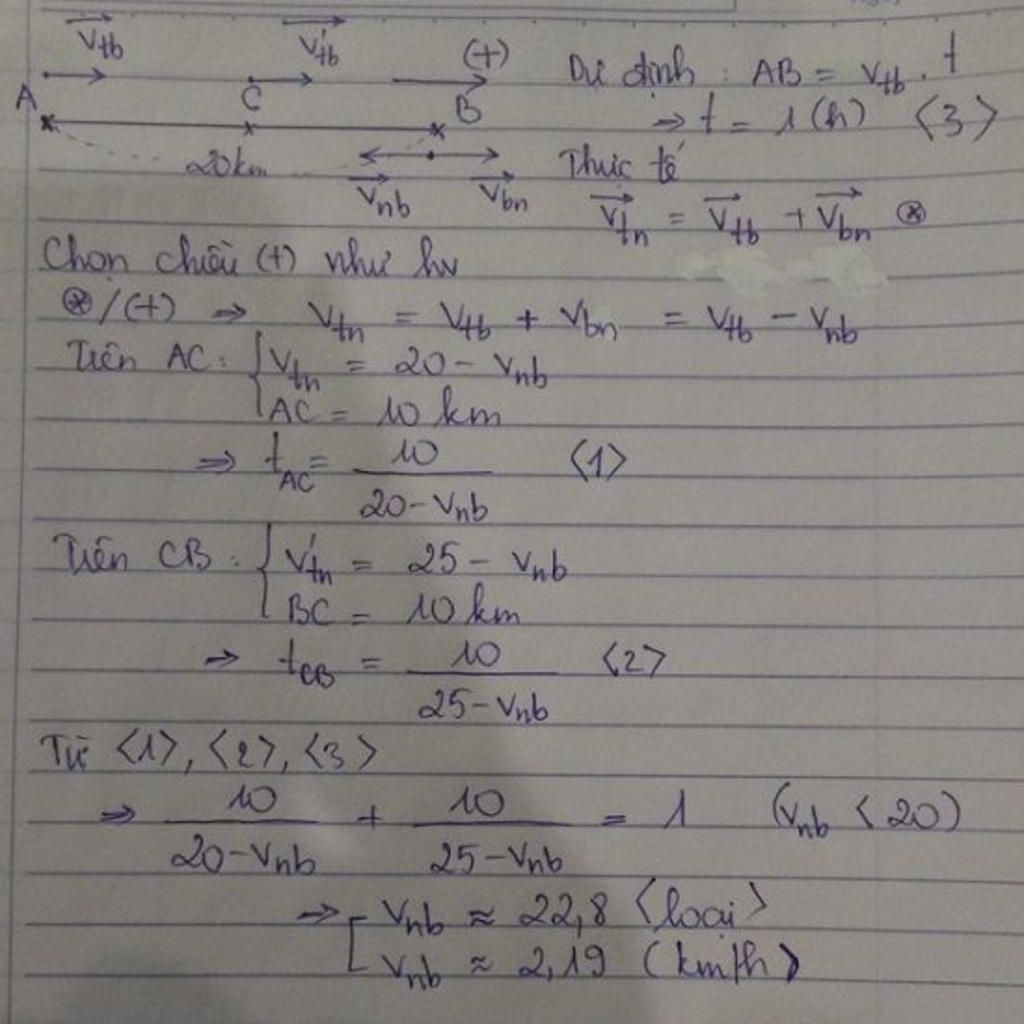 v⃗tb v⃗'tb (+) Dự định : AB = vtb . t
A C B ⇒ t = 1 (h) <3>
20km Thực tế
v⃗nb v⃗bn v⃗tn = v⃗tb + v⃗bn ⊛
Chọn chiều (+) như hv
⊛/(+) ⇒ vtn = vtb + vbn = vtb - vnb
Trên AC : { vtn = 20 - vnb
AC = 10 km
⇒ tAC = 10/(20 - vnb) <1>
Trên CB : { v'tn = 25 - vnb
BC = 10 km
⇒ tCB = 10/(25 - vnb) <2>
Từ <1>, <2>, <3>
⇒ 10/(20 - vnb) + 10/(25 - vnb) = 1 (vnb < 20)
⇒ [ vnb ≈ 22,8 <loại>
vnb ≈ 2,19 (km/h)